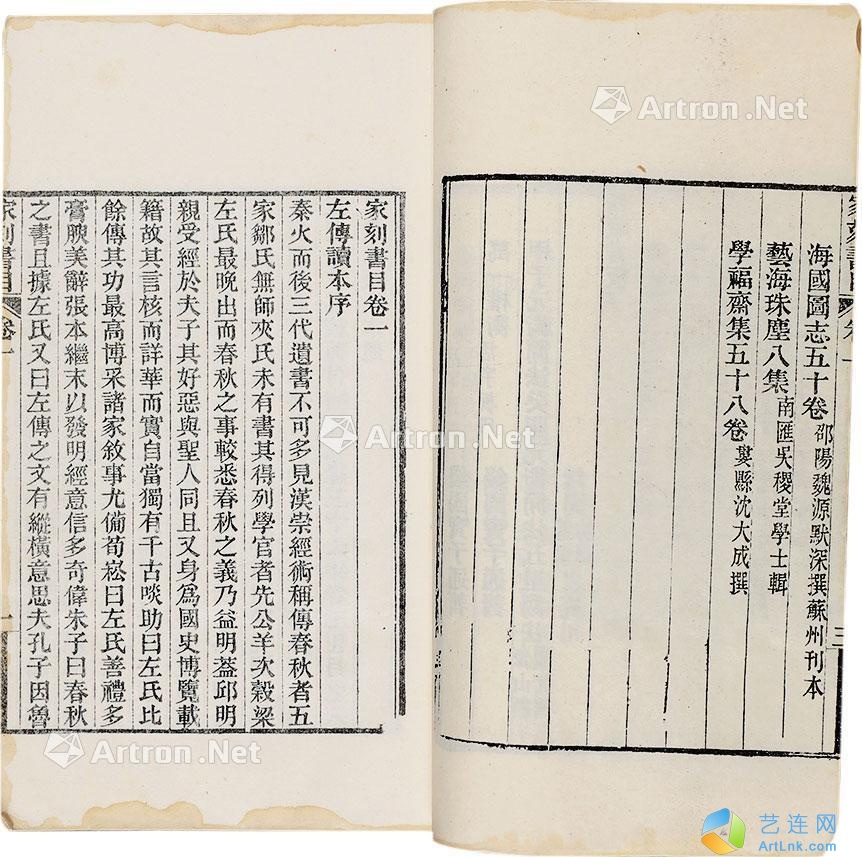 家刻書目
卷一
三
海國圖志五十卷 邵陽魏源默深撰蘇州刊本
藝海珠塵八集 南匯吳稷堂學士輯
學福齋集五十八卷 婁縣沈大成撰
家刻書目卷一
左傳讀本序
秦火而後三代遺書不可多見漢崇經術稱傳春秋者五
家鄒氏無師夾氏未有書其得列學官者先公羊次穀梁
左氏最晚出而春秋之事較悉春秋之義乃益明蓋邱明
親受經於夫子其好惡與聖人同且又身爲國史博覽載
籍故其言核而詳華而實自當獨有千古啖助曰左氏比
餘傳其功最高博采諸家敘事尤備荀崧曰左氏善禮多
膏腴美辭張本繼末以發明經意信多奇偉朱子曰春秋
之書且據左氏又曰左傳之文有縱橫意思夫孔子因魯
家刻書目
卷一
一
Artron.Net
Artron.Net
Artron.Net
Artron.Net
Artron.Net
Artron.Net
艺连网
ArtLnk.com